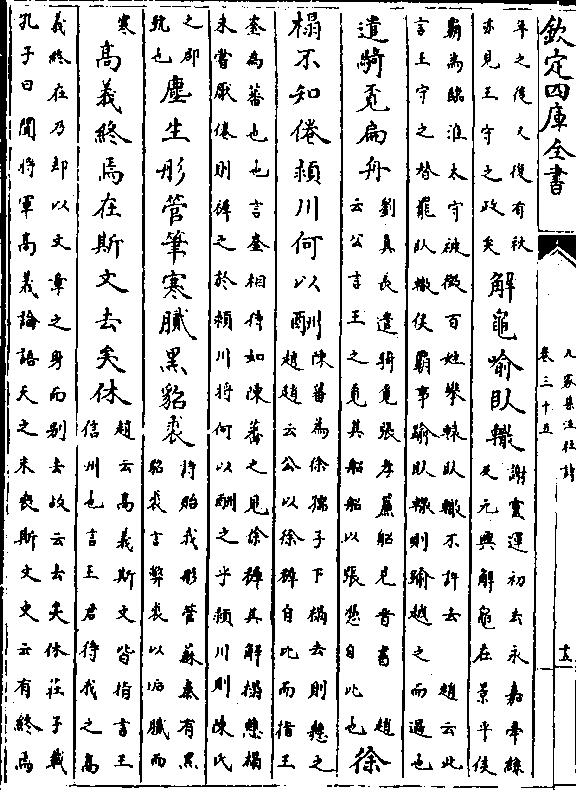 欽定四庫全書
九家集注杜詩
卷三十五
十五
年之後人復有袂
亦見王守之政矣
解龜踰臥轍
謝靈運初去永嘉牽絲
及元興解龜在景平侯
霸為臨淮太守被徵百姓攀轅臥轍不許去　趙云此
言王守之替罷臥轍侯霸事踰臥轍則踰越之而過也
遣騎覓扁舟
劉真長遣騎覓張孝廉船見晉書　趙
云公言王之覓其船船以張憑自比也
徐
榻不知倦潁川何以酬
陳蕃為徐孺子下榻去則懸之
趙趙云公以徐穉自比而指王
奎為蕃也也言奎相待如陳蕃之見徐穉其解榻懸榻
未嘗厭倦則穉之於潁川將何以酬之乎潁川則陳氏
之郡
號也
塵生彤管筆寒膩黑貂裘
詩貽我彤管蘇秦有黑
貂裘言弊裘以垢膩而
寒
高義終焉在斯文去矣休
趙云高義斯文皆指言王
信州也言王君待我之高
義終在乃却以文章之身而別去故云去矣休莊子載
孔子曰聞將軍高義論語天之未喪斯文史云有終焉